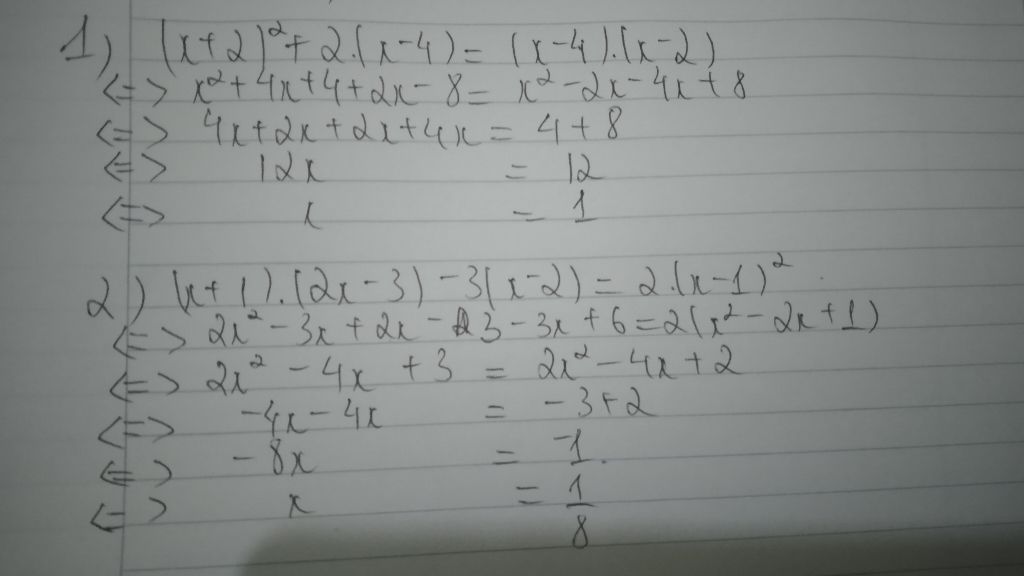 1) (x+2)²+2.(x-4)=(x-4).(x-2)
<=> x²+4x+4+2x-8= x²-2x-4x+8
<=> 4x+2x+2x+4x= 4+8
<=> 12x = 12
<=> x = 1
2) (x+1).(2x-3)-3(x-2)=2.(x-1)²
<=> 2x²-3x+2x-3-3x+6=2(x²-2x+1)
<=> 2x²-4x+3 = 2x²-4x+2
<=> -4x-4x = -3+2
<=> -8x = -1
<=> x = 1/8